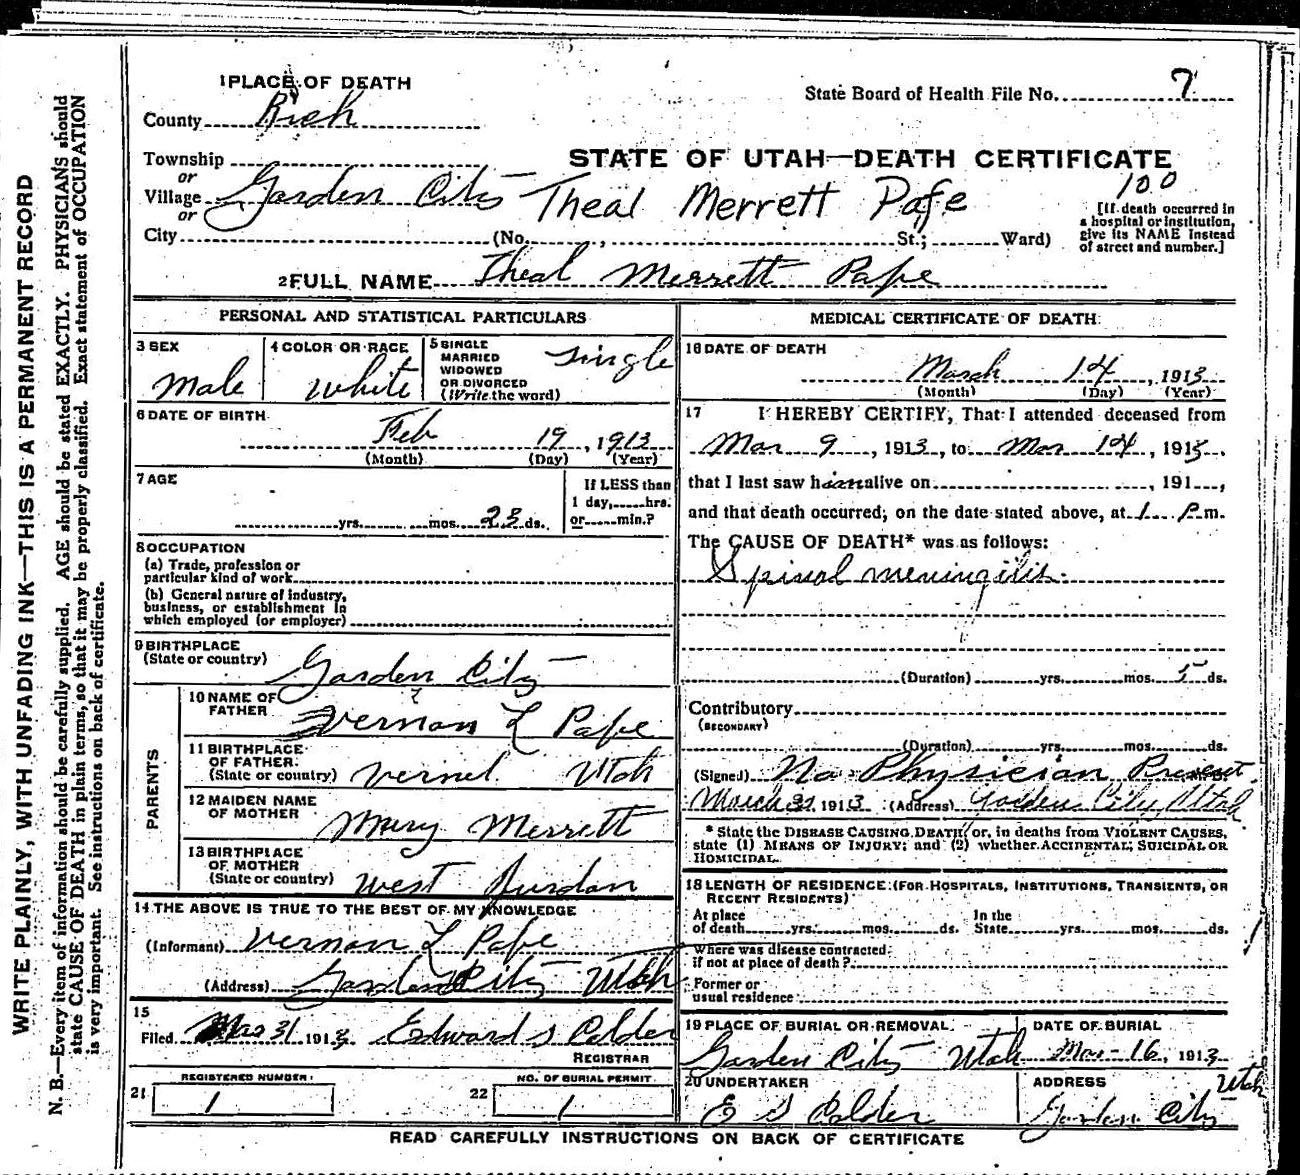 1 PLACE OF DEATH
State Board of Health File No. 7
County Rich
STATE OF UTAH—DEATH CERTIFICATE
Township
or
Village Garden City
Theal Merrett Pape
100
or
City (No. , St.; Ward)
[If death occurred in
a hospital or institution,
give its NAME instead
of street and number.]
2 FULL NAME Theal Merrett Pape
PERSONAL AND STATISTICAL PARTICULARS
3 SEX
Male
4 COLOR OR RACE
White
5 SINGLE
MARRIED
WIDOWED
OR DIVORCED
(Write the word)
Single
6 DATE OF BIRTH
Feb 19, 1913
(Month) (Day) (Year)
7 AGE
yrs. mos. 23 ds.
If LESS than
1 day, hrs.
or min.?
8 OCCUPATION
(a) Trade, profession or
particular kind of work
(b) General nature of industry,
business, or establishment in
which employed (or employer)
9 BIRTHPLACE
(State or country) Garden City
PARENTS
10 NAME OF
FATHER Vernon L Pape
11 BIRTHPLACE
OF FATHER
(State or country) Vernel Utah
12 MAIDEN NAME
OF MOTHER Mary Merrett
13 BIRTHPLACE
OF MOTHER
(State or country) West Jurdan
14 THE ABOVE IS TRUE TO THE BEST OF MY KNOWLEDGE
(Informant) Vernon L Pape
(Address) Garden City Utah
15
Filed Mar 31 1913 Edward S Calder
REGISTRAR
21 REGISTERED NUMBER
1
22 NO. OF BURIAL PERMIT
1
MEDICAL CERTIFICATE OF DEATH
16 DATE OF DEATH
March 14, 1913
(Month) (Day) (Year)
17 I HEREBY CERTIFY, That I attended deceased from
Mar 9, 1913, to Mar 14, 1913.
that I last saw h alive on , 191 ,
and that death occurred, on the date stated above, at 1 P. m.
The CAUSE OF DEATH* was as follows:
Spinal meningitis
(Duration) yrs. mos. 5 ds.
Contributory
(SECONDARY)
(Duration) yrs. mos. ds.
(Signed) No Physician Present
March 31 1913 (Address) Garden City Utah
* State the DISEASE CAUSING DEATH, or, in deaths from VIOLENT CAUSES,
state (1) MEANS OF INJURY; and (2) whether ACCIDENTAL, SUICIDAL OR
HOMICIDAL.
18 LENGTH OF RESIDENCE (FOR HOSPITALS, INSTITUTIONS, TRANSIENTS, OR
RECENT RESIDENTS)
At place
of death yrs. mos. ds.
In the
State yrs. mos. ds.
Where was disease contracted
if not at place of death?
Former or
usual residence
19 PLACE OF BURIAL OR REMOVAL
Garden City Utah
DATE OF BURIAL
Mar-16, 1913
20 UNDERTAKER
E S Calder
ADDRESS
Garden City Utah
READ CAREFULLY INSTRUCTIONS ON BACK OF CERTIFICATE
WRITE PLAINLY, WITH UNFADING INK—THIS IS A PERMANENT RECORD
N. B.—Every item of information should be carefully supplied. AGE should be stated EXACTLY. PHYSICIANS should
state CAUSE OF DEATH in plain terms, so that it may be properly classified. Exact statement of OCCUPATION
is very important. See instructions on back of certificate.